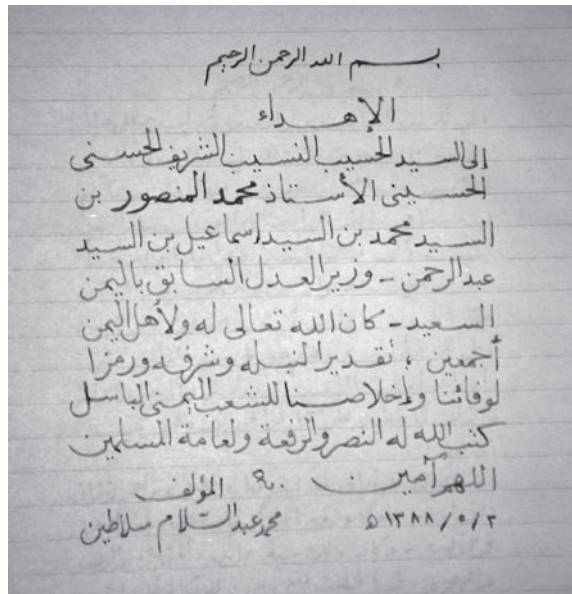 بسم الله الرحمن الرحيم
الإهداء
إلى السيد الحسيب النسيب الشريف الحسنى
الحسينى الأستاذ محمد المنصور بن
السيد محمد بن السيد إسماعيل بن السيد
عبد الرحمن - وزير العدل السابق باليمن
السعيد - كان الله تعالى له ولأهل اليمن
أجمعين ، تقديرا لنبله وشرفه ورمزا
لوفائنا وإخلاصنا للشعب اليمنى الباسل
كتب الله له النصر والرفعة ولعامة المسلمين
اللهم آمين المؤلف
٢/٥/١٣٨٨ ه محمد عبد السلام سلاطين